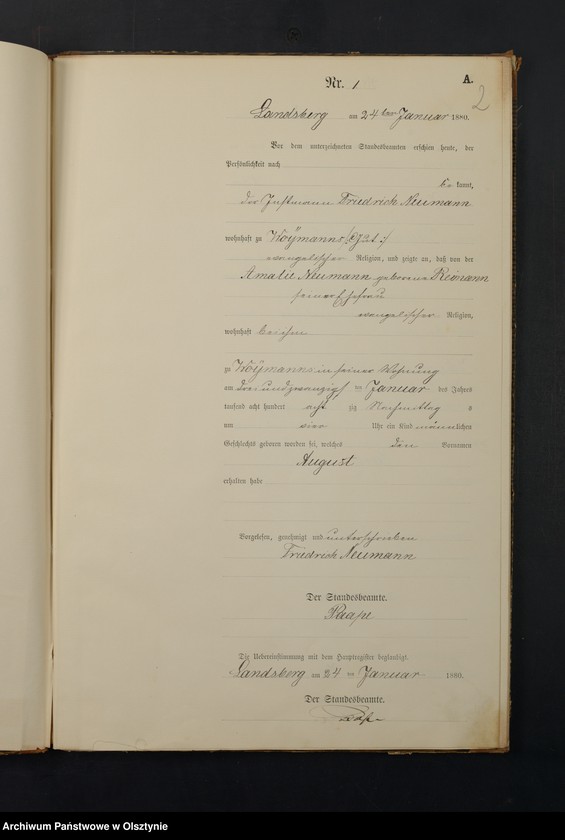 A.
Nr. 1
2
Landsberg am 24 ten Januar 1880.
Vor dem unterzeichneten Standesbeamten erschien heute, der
Persönlichkeit nach
be kannt,
der Instmann Friedrich Neumann
wohnhaft zu Woÿmanns (Gut:)
evangelischer Religion, und zeigte an, daß von der
Amalie Neumann geborene Reimann
seiner Ehefrau
evangelischer Religion,
wohnhaft bei ihm
zu Woÿmanns in seiner Wohnung
am drei und zwanzigst ten Januar des Jahres
tausend acht hundert acht zig Nachmittag s
um vier Uhr ein Kind männlichen
Geschlechts geboren worden sei, welches den Vornamen
August
erhalten habe
Vorgelesen, genehmigt und unterschrieben
Friedrich Neumann
Der Standesbeamte.
Die Uebereinstimmung mit dem Hauptregister beglaubigt.
Landsberg am 24 ten Januar 1880.
Der Standesbeamte.
Archiwum Państwowe w Olsztynie